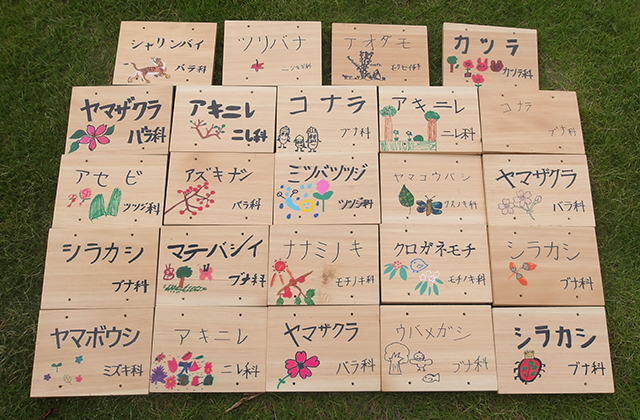 シャリンバイ
バラ科
ツリバナ
ニシキギ科
アオダモ
モクセイ科
カツラ
カツラ科
ヤマザクラ
バラ科
アキニレ
ニレ科
コナラ
ブナ科
アキニレ
ニレ科
コナラ
ブナ科
アセビ
ツツジ科
アズキナシ
バラ科
ミツバツツジ
ツツジ科
ヤマコウバシ
クスノキ科
ヤマザクラ
バラ科
シラカシ
ブナ科
マテバシイ
ブナ科
ナナミノキ
モチノキ科
クロガネモチ
モチノキ科
シラカシ
ブナ科
ヤマボウシ
ミズキ科
アキニレ
ニレ科
ヤマザクラ
バラ科
ウバメガシ
ブナ科
シラカシ
ブナ科